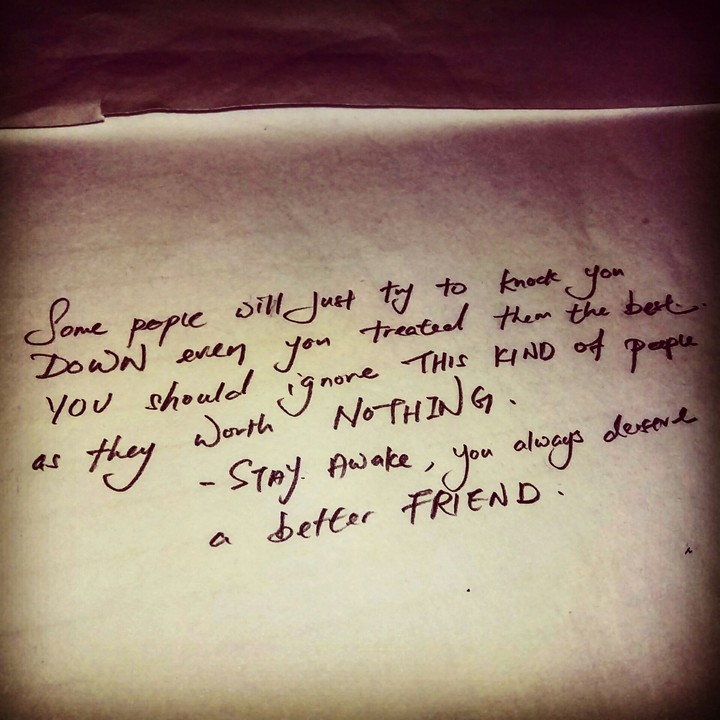 Some people will Just try to knock you
DOWN even you treated them the best.
YOU should ignore THIS KIND of people
as they worth NOTHING.
- STAY. Awake, you always deserve
a better FRIEND.